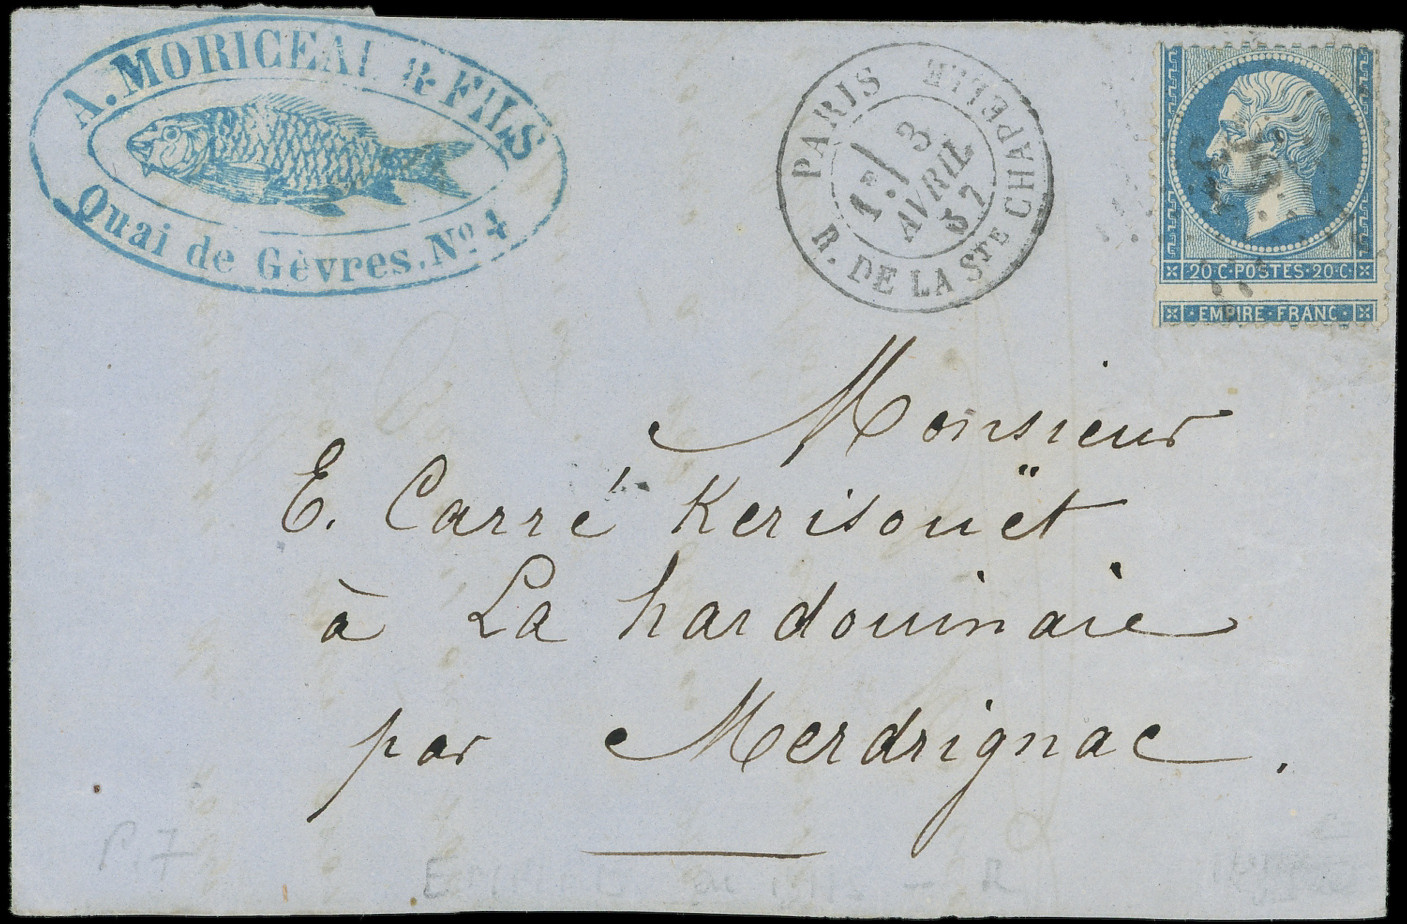 A. MORICEAU & FILS
Quai de Gèvres. Nº 4
PARIS
R. DE LA STE CHAPELLE
1E
3
AVRIL
20·C·POSTES·20·C
EMPIRE·FRANC
Monsieur
E. Carré Kerisouët
à La hardouinaie
par Merdrignac.
P. 7